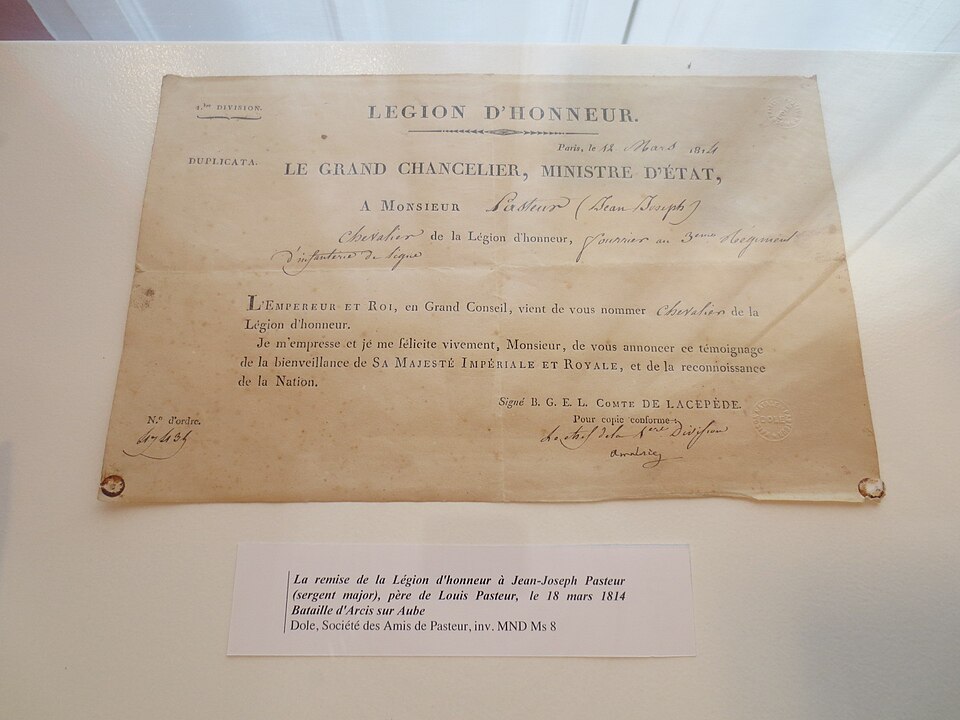 1.ere DIVISION.
LEGION D'HONNEUR.
Paris, le 12 Mars 1814
DUPLICATA.
LE GRAND CHANCELIER, MINISTRE D'ÉTAT,
A MONSIEUR Pasteur (Jean Joseph)
Chevalier de la Légion d'honneur, fourrier au 3eme Régiment
d'infanterie de ligne
L'EMPEREUR ET ROI, en Grand Conseil, vient de vous nommer Chevalier de la
Légion d'honneur.
Je m'empresse et je me félicite vivement, Monsieur, de vous annoncer ce témoignage
de la bienveillance de SA MAJESTÉ IMPÉRIALE ET ROYALE, et de la reconnoissance
de la Nation.
Signé B. G. E. L. COMTE DE LACEPÈDE.
Pour copie conforme:
N.° d'ordre.
Le chef de la 1ere Division
La remise de la Légion d'honneur à Jean-Joseph Pasteur
(sergent major), père de Louis Pasteur, le 18 mars 1814
Bataille d'Arcis sur Aube
Dole, Société des Amis de Pasteur, inv. MND Ms 8